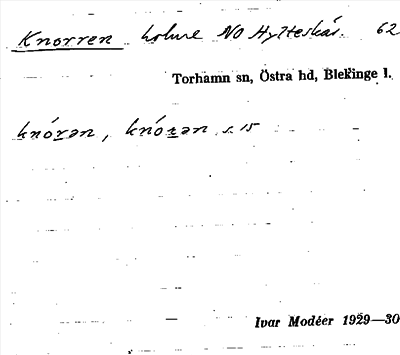 Knorren holme NO Hylteskär. 62
Torhamn sn, Östra hd, Blekinge l.
knórən, knórən s. 15
Ivar Modéer 1929—30